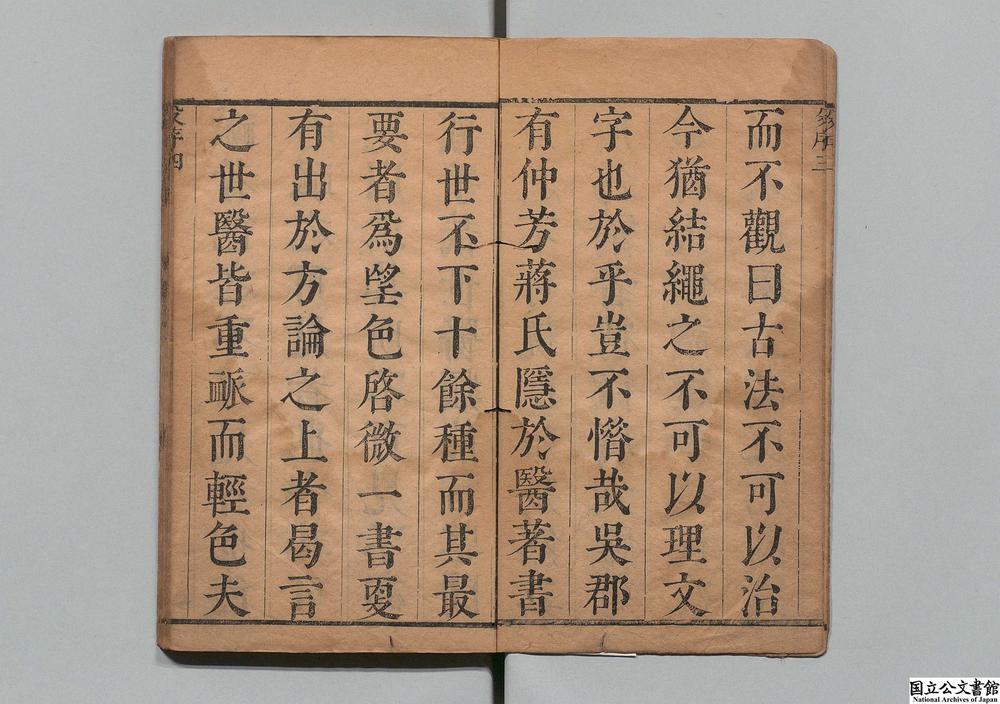 而不觀曰古法不可以治
今猶結繩之不可以理文
字也於乎豈不愲哉吳郡
有仲芳蔣氏隱於醫著書
行世不下十餘種而其最
要者爲望色啓微一書更
有出於方論之上者曷言
之世醫皆重脈而輕色夫
国立公文書館
National Archives of Japan